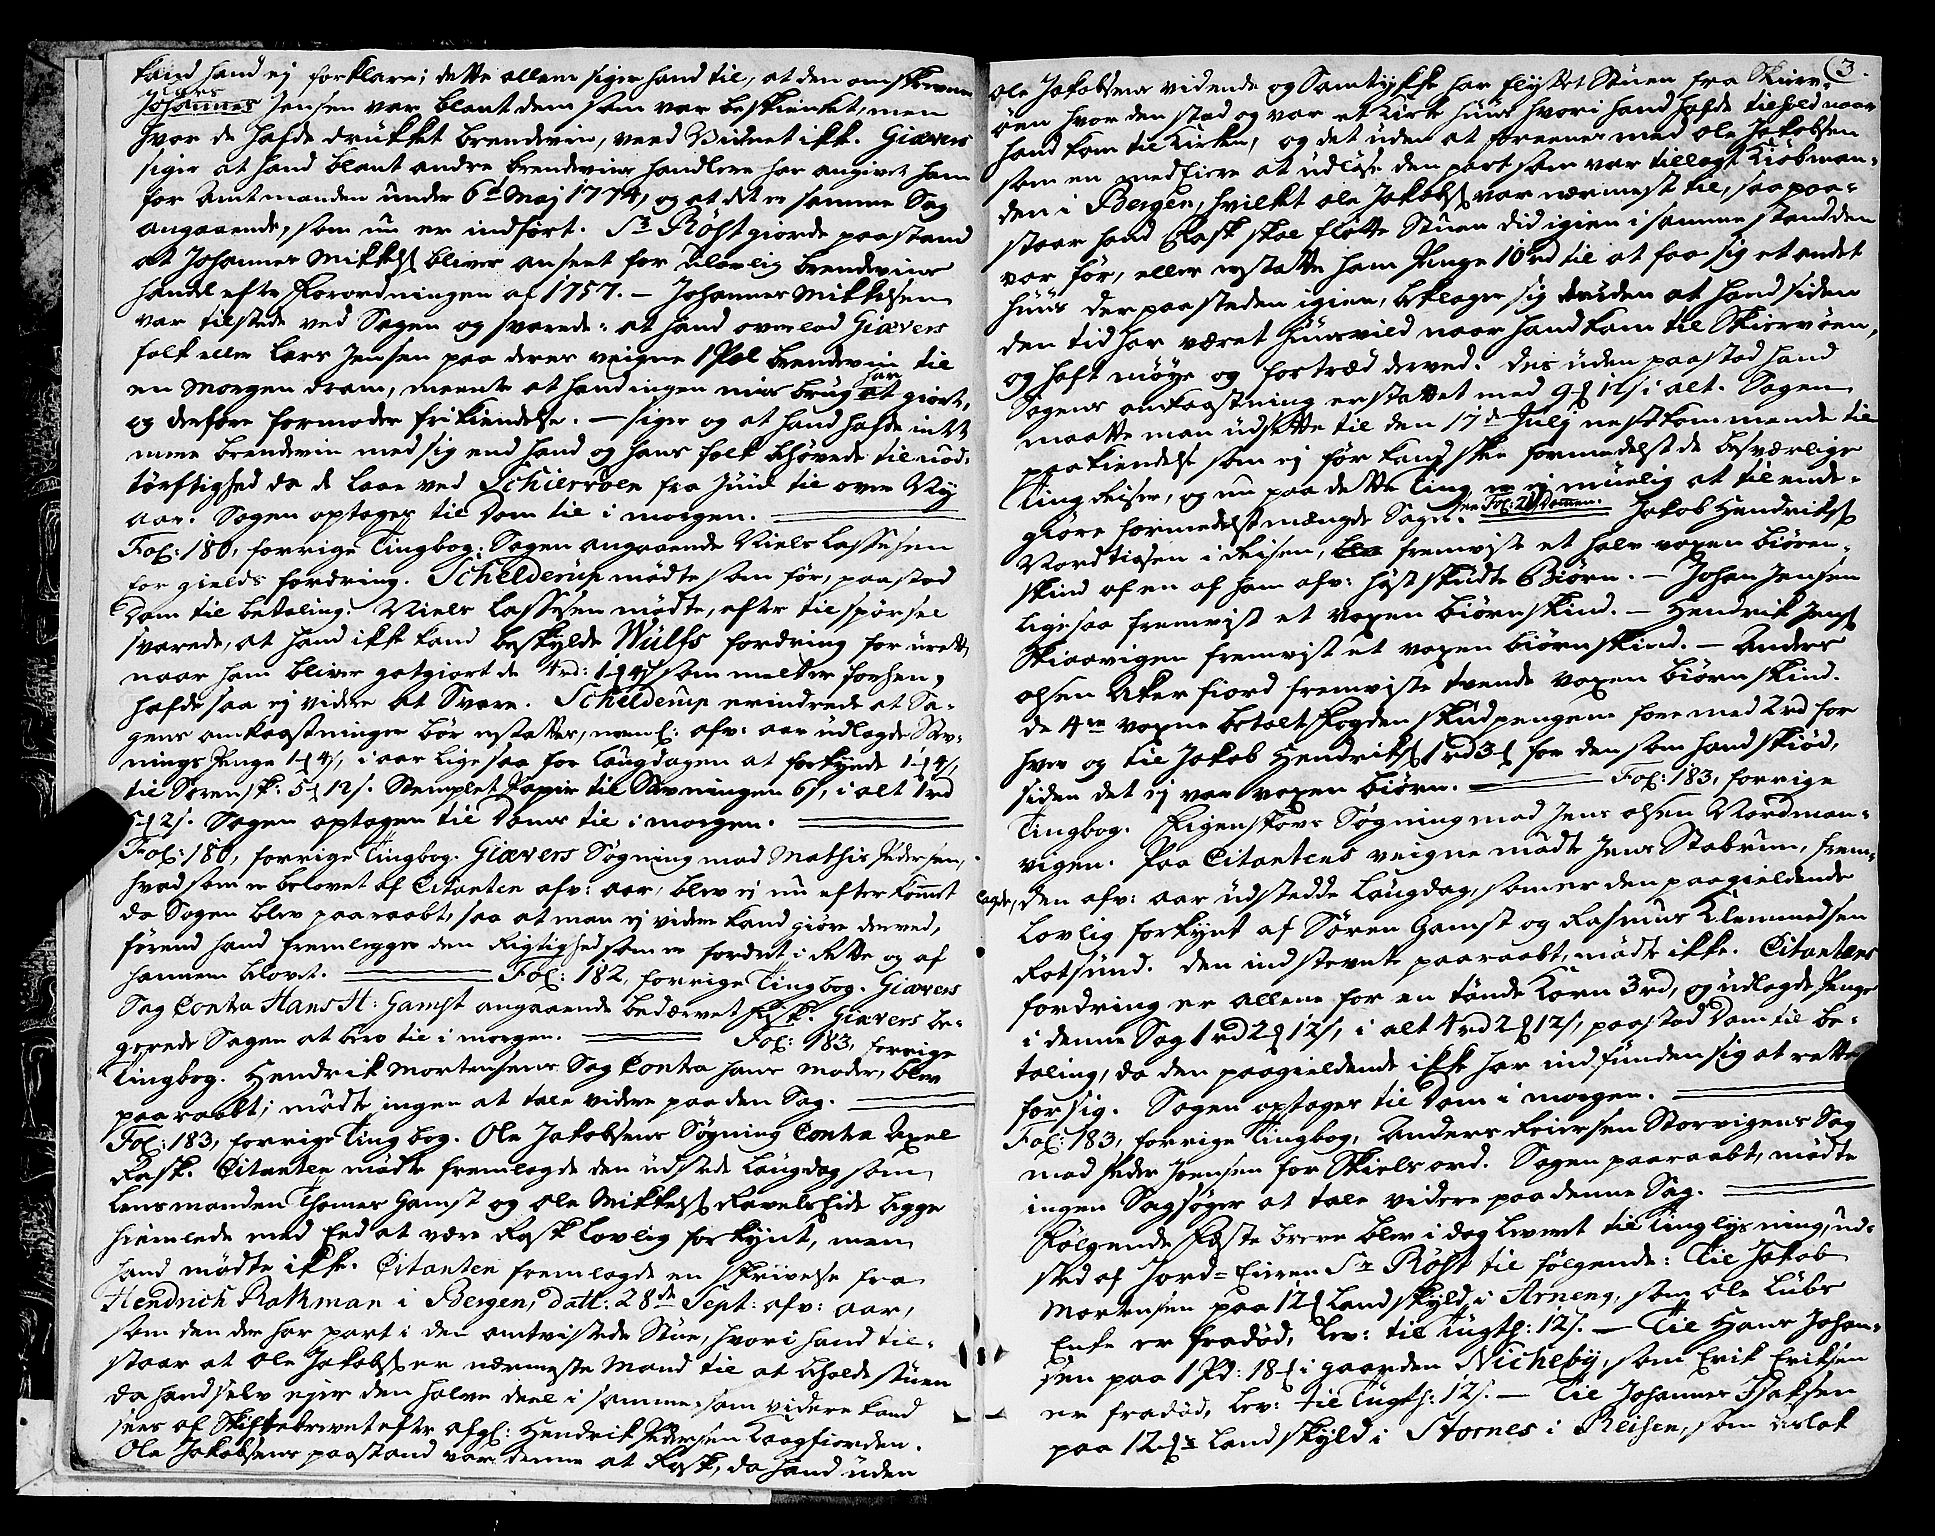 kand hand ej forklare; dette allene siger hand til, at den omskrevne
Johannes Jensen var blant dem som var beskienket, men
hvor de hafde drukket brendeviin, veed Vidnet ikke. Giævers
siger at hand blant andre brendeviins handlere har angivet ham
for Amtmanden under 6te Maj 1774, og at det er samme Sag
angaaende, som nu er indført. Sr Røst giorde paastand
at Johannes Mikkels: bliver anseet for Ulovlig brendeviins
handel efter Forordningen af 1757. — Johannes Mikkelsen
var tilstede ved Sagen og svarede: at hand overlod Giævers
folk eller Lars Jensen paa deres veigne 1 Pel brendeviin til
en Morgen dram, meente at hand ingen misbrug har giort,
og derfore formoder frikiendelse. — siger og at hand hafde intet
mere brendeviin med sig end hand og hans folk behøvede til nød-
tørftighed da de laae ved Schiervøen fra Juul til over Ny
aar. Sagen optages til Dom til i morgen.
Fol: 180, forrige Tingbog. Sagen angaaende Niels Lassesen
for gields fordring. Schelderup mødte som før, paastod
Dom til betaling. Niels Lassesen mødte, efter tilspørsel
svarede, at hand ikke kand beskylde Wulfs fordring for urett,
naar ham bliver gotgiort de 4rd: som melt er forhen,
hafde saa ej videre at Svare. Schelderup erindrede at Sa-
gens omkostninger bør erstattes, neml: afv: aar udlagde Stev-
nings Penge i aar ligesaa for Laugdagen at forkynde
til Sorensk: 5 12s. Stemplet Papir til Stevningen 6s, i alt 1rd
2s. Sagen optagen til Doms til i morgen.
Fol: 180, forrige Tingbog. Giævers Søgning mod Mathis Pedersen,
hvad som er belovet af Citanten afv: aar, blev ej nu efterkommet
da Sagen blev paaraabt, saa at man ej videre kand giøre derved,
førend hand fremlegger den Rigtighed som er fordret i Rette og af
hannem lovet. Fol: 182, forrige Tingbog. Giævers
Sag Contra Hans H: Gamst angaaende bedærvet Fisk. Giævers be-
gerede Sagen at bero til i morgen. Fol: 183, forrige
Tingbog. Hendrik Mortensens Sag Contra hans Moder, blev
paaraabt; mødte ingen at tale videre paa den Sag.
Fol: 183, forrige Tingbog. Ole Jakobsens Søgning Contra Axel
Rask. Citanten mødte fremlagde den udstede Laugdag, som
Lensmanden Thomes Gamst og Ole Mikkels: Ravelseide begge
hiemlede med Eed at være Rask lovlig forkynt, men
hand mødte ikke. Citanten fremlagde en skrivelse fra
Hendrich Rathman i Bergen, datt: 28de Sept: afv: aar,
som den der har part i den omtvistede Stue, hvori hand til-
staar at Ole Jakobs: er nærmeste Mand til at beholde stuen
da hand selv ejer den halve deel i samme som videre kand
sees af Skiftebrevet efter afg: Hendrik Pedersen Kaagfiorden.
Ole Jakobsens paastand var denne at Rask, da hand uden
3.
Ole Jakobsens vidende og Samtykke har flyttet Stuen fra Skierv-
øen hvor den stod og var et Kirke huus hvori hand hafde tilhold naar
hand kom til Kirken, og det uden at foreenes med Ole Jakobsen
som en medeiere at udløse den part som var tillagt Kiøbman-
den i Bergen, hvilket Ole Jakobs: var nærmest til, saa paa-
staar hand Rask skal flytte Stuen did igien i samme stand den
var før, eller erstatte ham Penge 10rd til at faae sig et andet
huus der paa steden igien, beklager sig desuden at hand siden
den tid har været huusvild naar hand kom til Skiervøen,
og haft møye og fortræd derved. Desuden paastod hand
Sagens omkostning erstattet med 9 12s i alt. Sagen
maatte man udsette til den 17de Julj nestkommende til
paakiendelse som ej før kand skee formedelst de besværlige
Ting Reiser, og nu paa dette Ting er ej mueligt at tilende-
giøre formedelst mængde Sager. see Fol: Dommen. Jakob Hendriks:
Nordtiosen i Reisen, fremviste et halv voxen biørne-
skind af en af ham afv: høst skudte Biørn. — Johan Jensen
ligesaa fremvist et voxen biørnskind. — Hendrik Jens:
Skiaavigen fremvist et voxen biørnskind. — Anders
Olsen Akerfiord fremviste tvende voxen biørnskind.
de 4re voxne betalt Fogden skudpengene fore med 2rd for
hver og til Jakob Hendriks: 1rd3 for den som hand skiød,
siden det ej var voxen biørn. Fol: 183, forrige
Tingbog. Figenskovs Søgning mod Jens Olsen Nordman-
vigen. Paa Citantens veigne mødte Jens Stabrun, frem-
lagde, den afv: aar udstedde Laugdag, som er den paagieldende
lovlig forkynt af Søren Gamst og Rasmus Klemmedsen
Rotsund. Den indstevnte paaraabt, mødte ikke. Citantens
fordring er allene for en tønde Korn 3rd, og udlagde Penge
i denne Sag 1rd2 12s, i alt 4rd2 12s, paastod Dom til be-
taling, da den paagieldende ikke har indfunden sig at rette
for sig. Sagen optages til Dom i morgen.
Fol: 183, forrige Tingbog, Anders Reiersen Storvigens Sag
mod Peder Joensen for Skielsord. Sagen paaraabt, mødte
ingen Sagsøger at tale videre paa denne Sag.
Følgende Fæste breve blev i dag leveret til Tinglysning, ud-
sted af Jord-Eieren Sr Røst til følgende: Til Jakob
Mortensen paa 12 Landskyld i Arneng, som Ole Lubs
Enke er fradød, lev: til Tugth: 12s. — Til Hans Johan-
sen paa 1 Pd: 18 i gaarden Nicheby, som Erik Eriksen
er fradød, lev: til Tugth: 12s. — Til Johannes Isaksen
paa 12 Landskyld i Stornes i Reisen, som Aslak